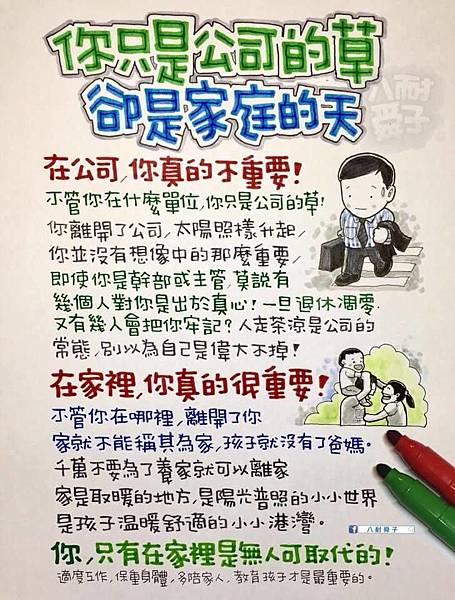 你只是公司的草
卻是家庭的天
八耐
舜子
在公司,你真的不重要!
不管你在什麼單位,你只是公司的草!
你離開了公司,太陽照樣升起,
你並沒有想像中的那麼重要,
即使你是幹部或主管,莫說有
幾個人對你是出於真心!一旦退休凋零.
又有幾人會把你牢記?人走茶涼是公司的
常態,別以為自己是偉大不掉!
在家裡,你真的很重要!
不管你在哪裡,離開了你
家就不能稱其為家,孩子就沒有了爸媽。
千萬不要為了養家就可以離家
家是取暖的地方,是陽光普照的小小世界
是孩子溫暖舒適的小小港灣。
八耐舜子
你,只有在家裡是無人可取代的!
適度工作,保重身體,多陪家人,教育孩子才是最重要的。